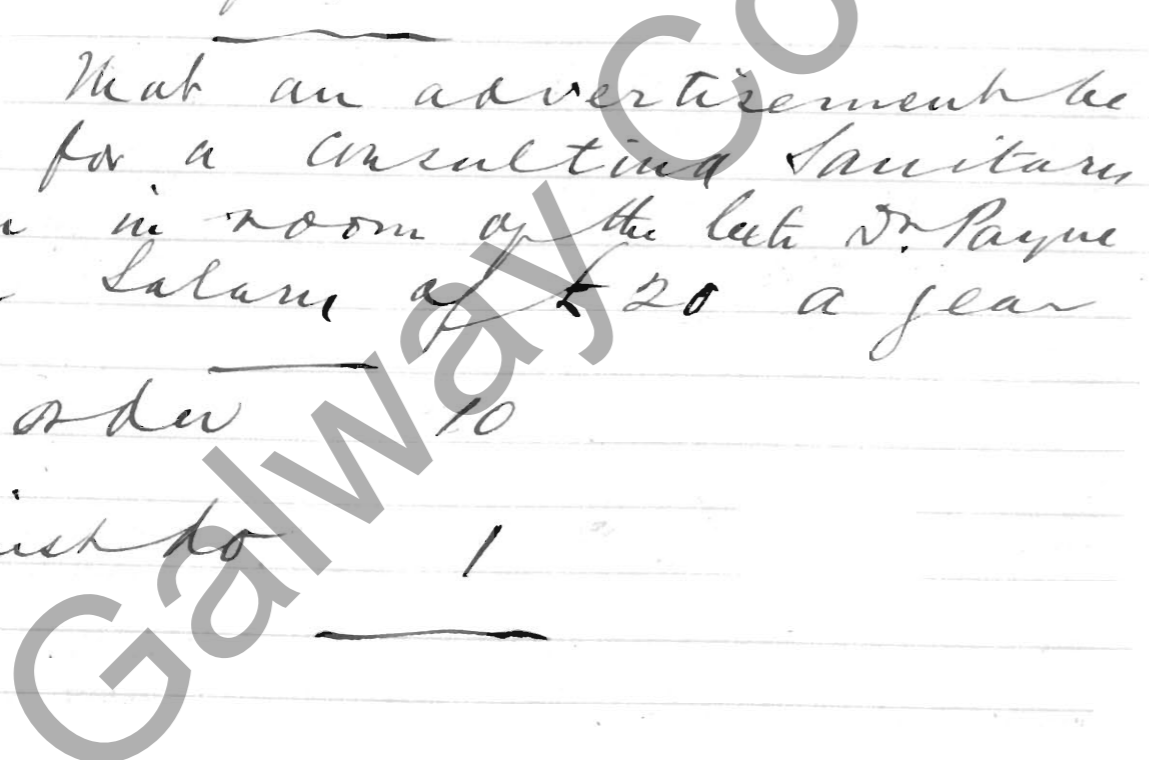 That an advertisement be
for a consulting Sanitary
in room of the late Dr. Payne
Salary of £20 a year
order 10
do 1
Galway Co